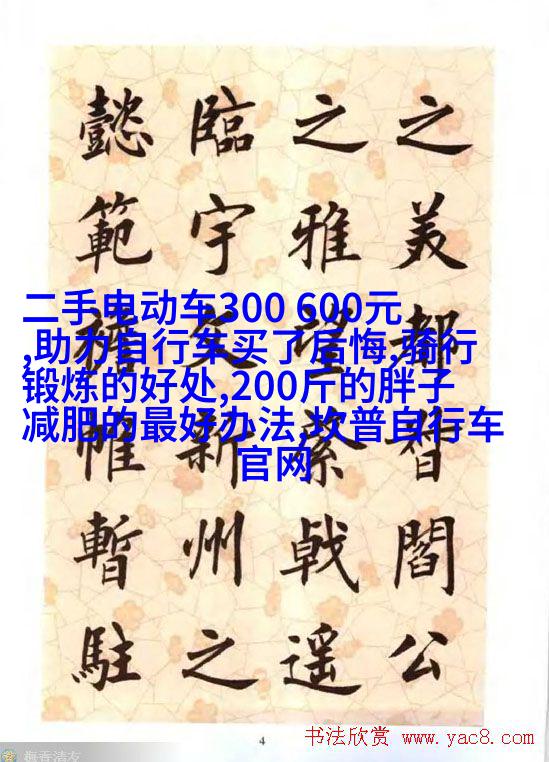 之美都督閻公
之雅望棨戟遥
臨宇文新州之
懿範襜帷暫駐
二手电动车300 600元
,助力自行车买了后悔,骑行
锻炼的好处,200斤的胖子
减肥的最好办法,坎普自行车
官网
4
书法欣赏 www.yac8.com
梅香清友